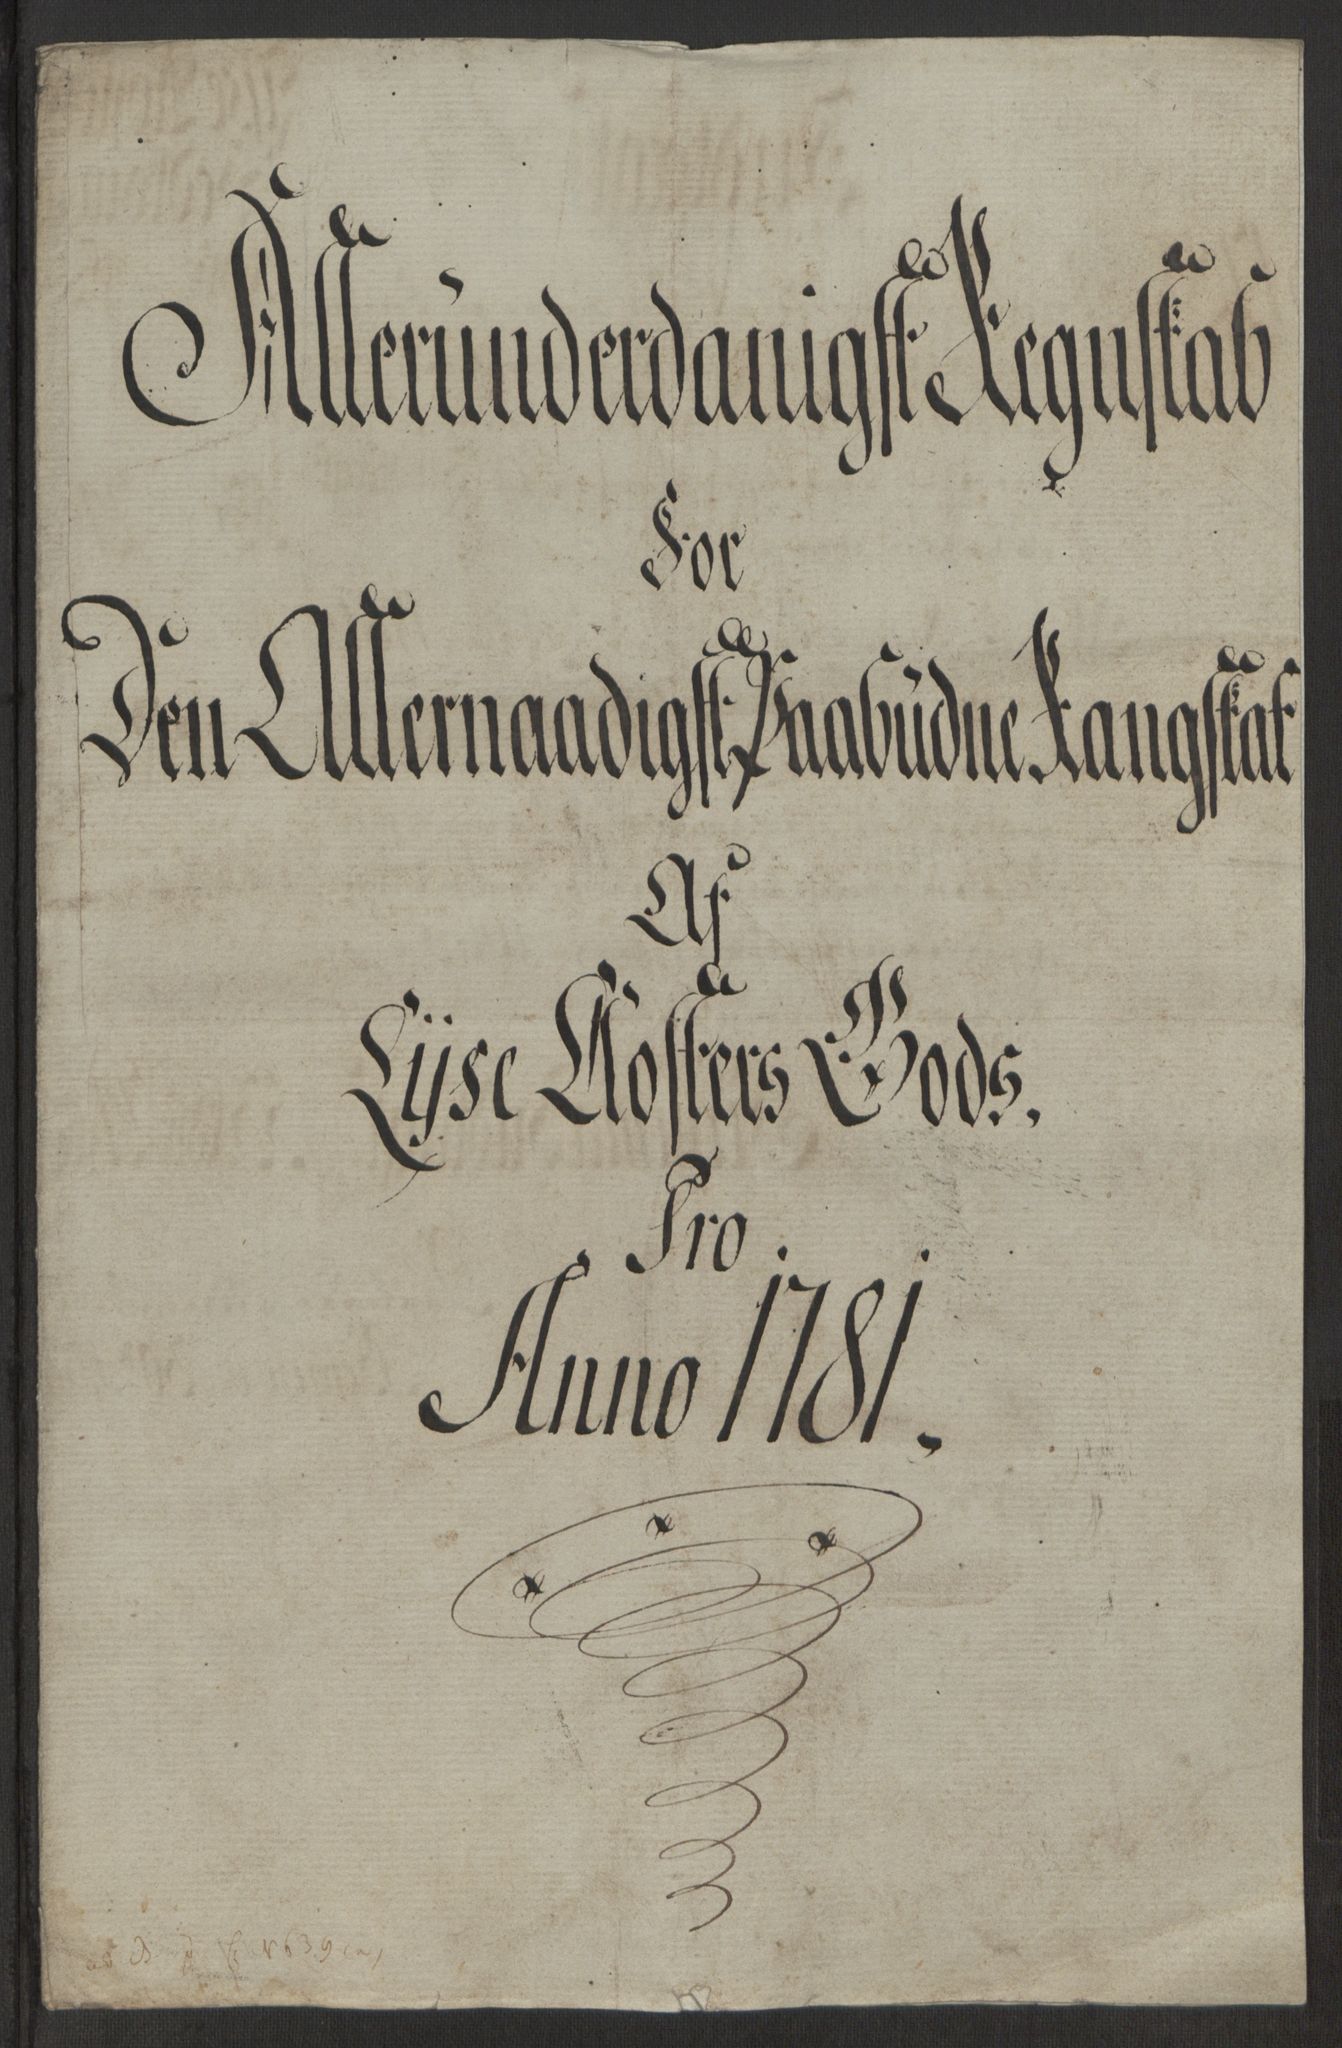 Allerunderdanigst Regnskab
For
Den Allernaadigst Paabudne Rangskat
Af
Lÿse Closters Gods.
Pro
Anno 1781.